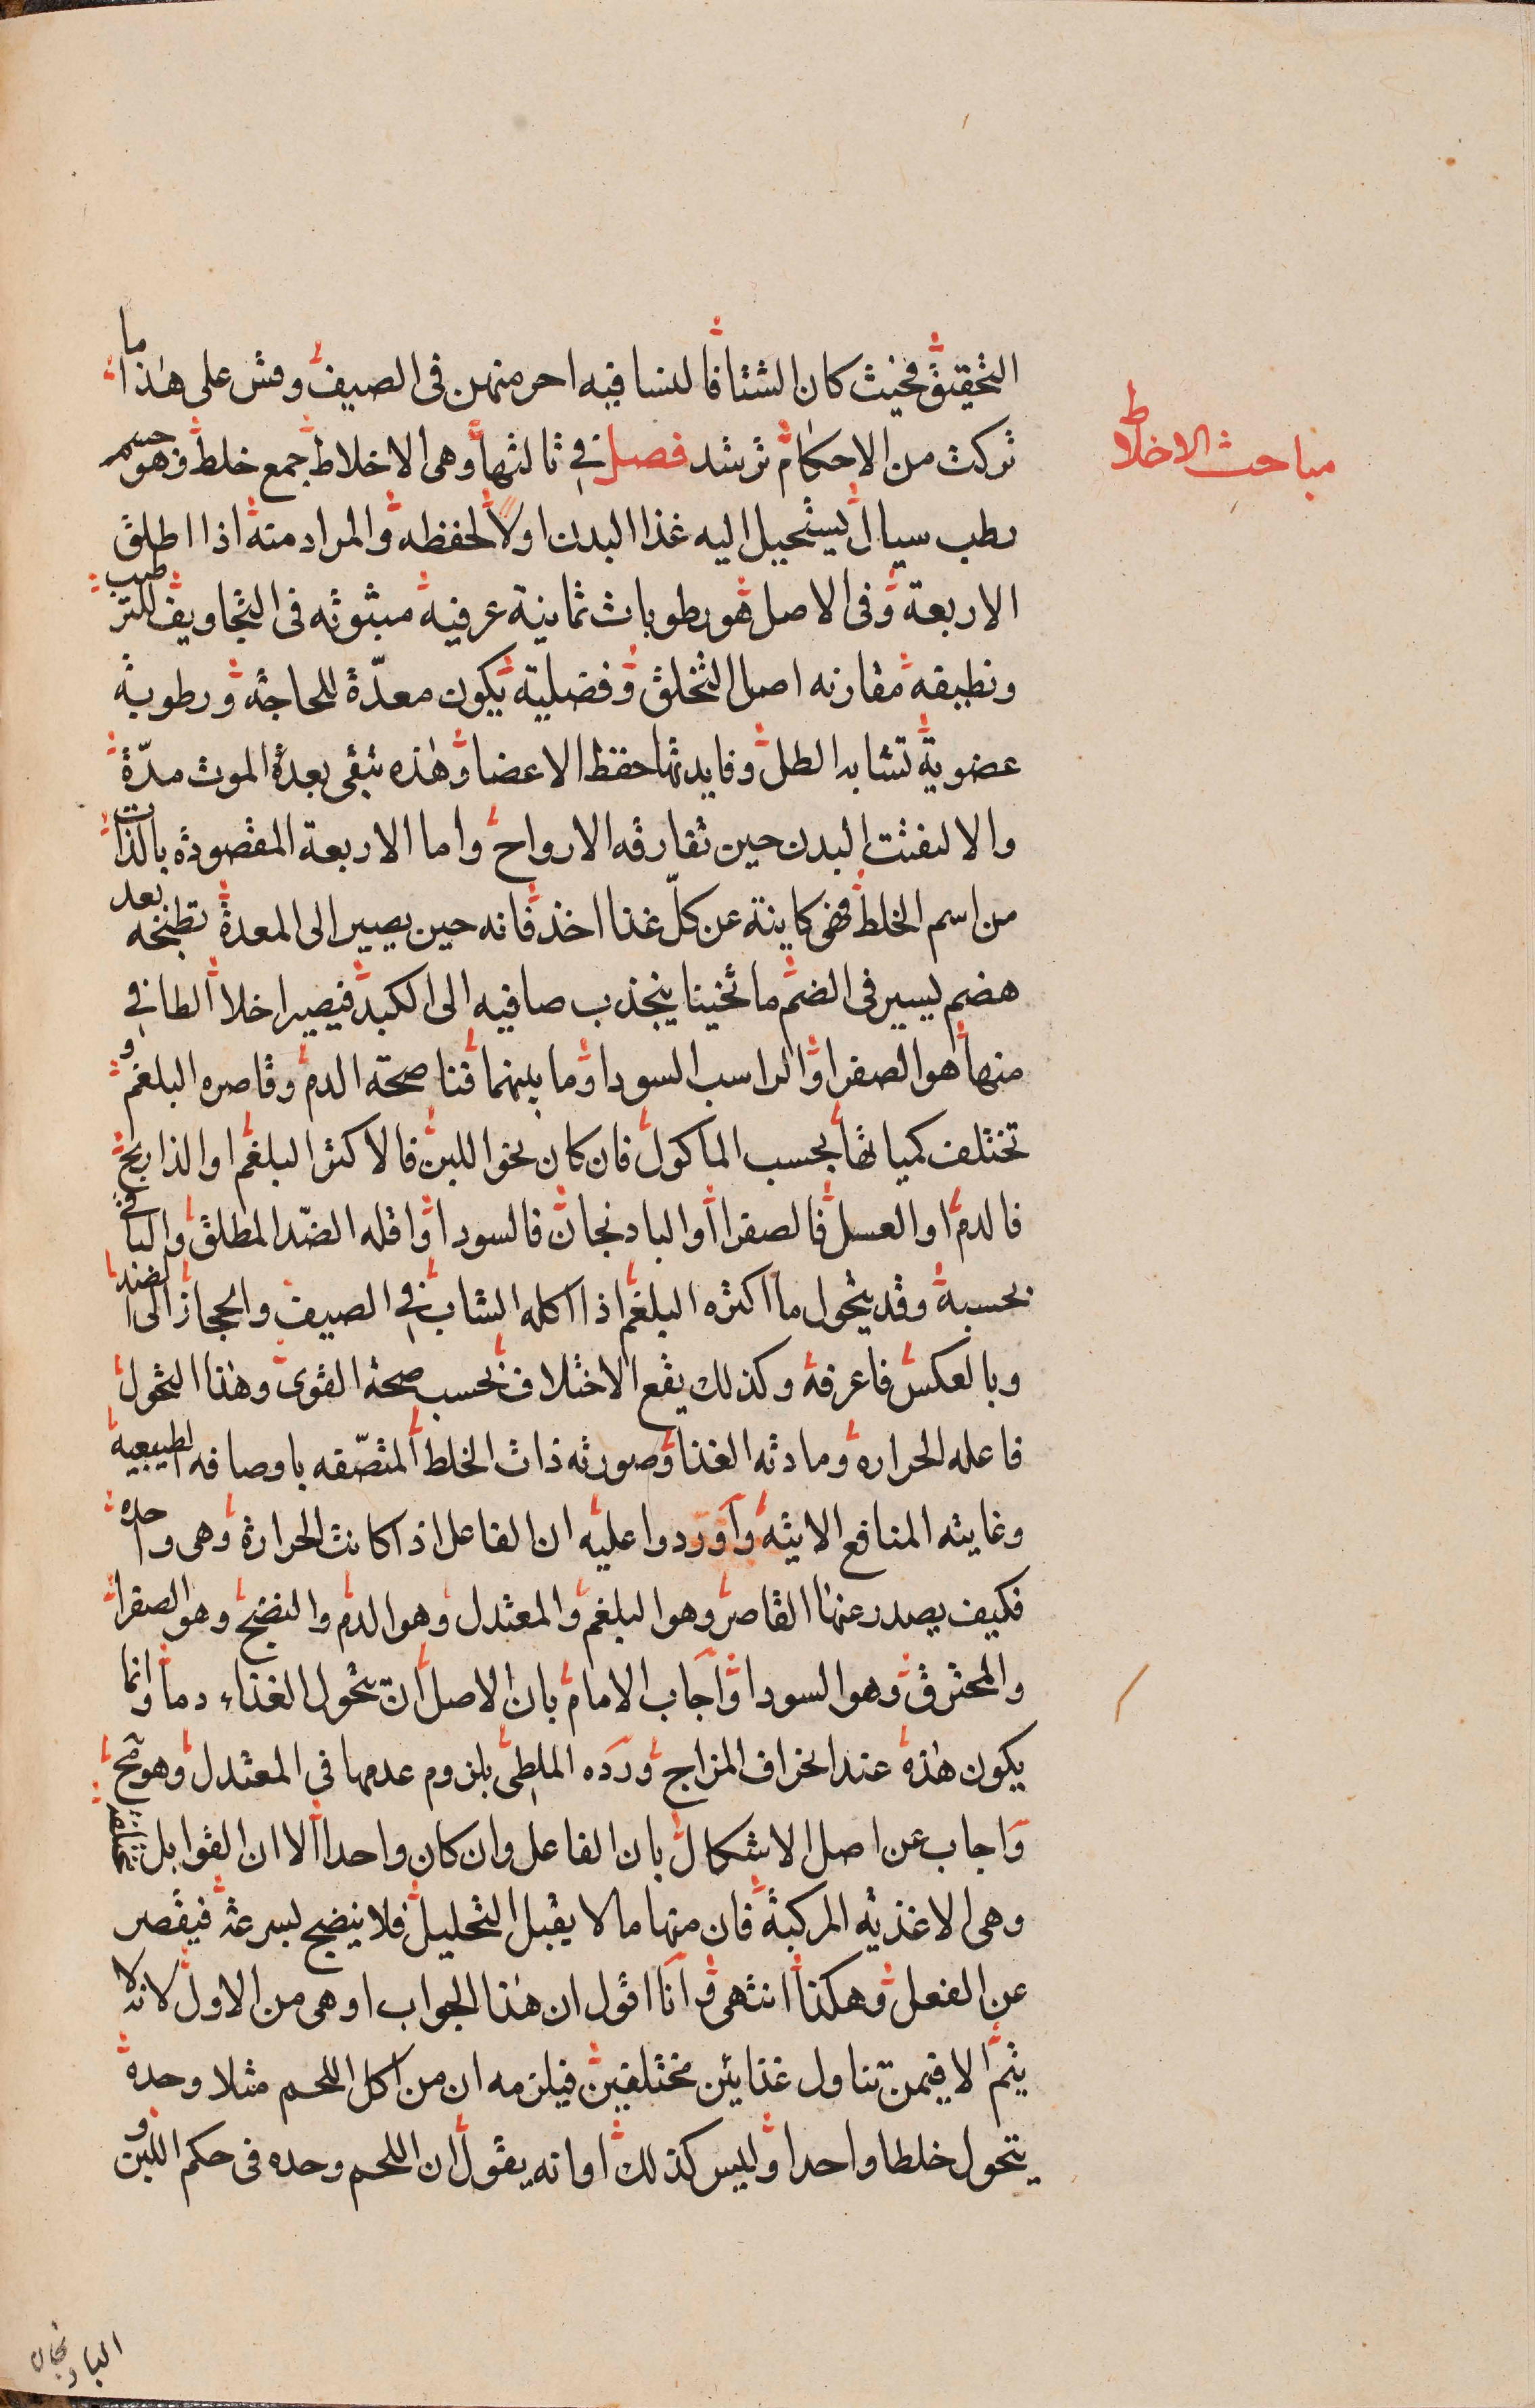 مباحث الاخلاط
التحقيق فحيث كان الشتا فالنسا فيه احر منهن في الصيف وقس على هذا ما
تركت من الاحكام ترشد فصل في ثالثها وهى الاخلاط جمع خلط وهو جسم
رطب سيال يستحيل اليه غذا البدن اولا لحفظه والمراد منه اذا اطلق
الاربعة وفى الاصل هو رطوبات ثمانية عرفيه مبثوثه فى التجاويف للترطيب
ونطيقه مقارنه اصل التخلق وفضلية يكون معدّة للحاجة ورطوبة
عضوية تشابه الطل وفايدتها حفظ الاعضا وهذه تبقى بعد الموت مدّة
والا لتفتت البدن حين تفارقه الارواح واما الاربعة المقصوده بالذات
من اسم الخلط فهى كاينة عن كلّ غذا اخذ فانه حين يصير الى المعدة تطبخه بعد
هضم يسير فى الضم ما ثخينا ينجذب صافيه الى الكبد فيصير اخلاطا الطافي
منها هو الصفرا والراسب السودا وما بينهما فناصحته الدم وقاصره البلغم و
تختلف كمياتها بحسب الماكول فان كان نحو اللبن فالاكثر البلغم او الذاريج
فالدم او العسل فالصفرا او البادنجان فالسودا واقله الضدّ المطلق والباقي
بحسبه وقد يتحول ما اكثره البلغم اذا اكله الشاب في الصيف والحجاز الى الضد
وبالعكس فاعرفه وكذلك يقع الاختلاف بحسب صحة القوى وهذا التحول
فاعله الحراره ومادته الغذا وصورته ذات الخلط المتصّفه باوصافه الطبيعية
وغايته المنافع الايته واوردوا عليه ان الفاعل اذا كانت الحرارة وهى واحده
فكيف يصدر عنها القاصر وهو البلغم والمعتدل وهو الدم والنضيج وهو الصفرا
والمحترق وهو السودا واجاب الامام بان الاصل ان يتحول الغذاء دما وانما
يكون هذه عند انحراف المزاج ورده الملطى بلزوم عدمها في المعتدل وهو مح
واجاب عن اصل الاشكال بان الفاعل وان كان واحدا الا ان القوابل مختلفة
وهى الاغذيه المركبة فان منها ما لا يقبل التحليل فلا ينضج بسرعة فيقصر
عن الفعل وهكذا انتهى وانا اقول ان هذا الجواب اوهى من الاول لانه لا
يتم الا فيمن تناول غذايئن مختلفين فيلزمه ان من اكل اللحم مثلا وحده
يتحول خلطا واحدا وليس كذلك او انه يقول ان اللحم وحده فى حكم اللبن و
البادنجان